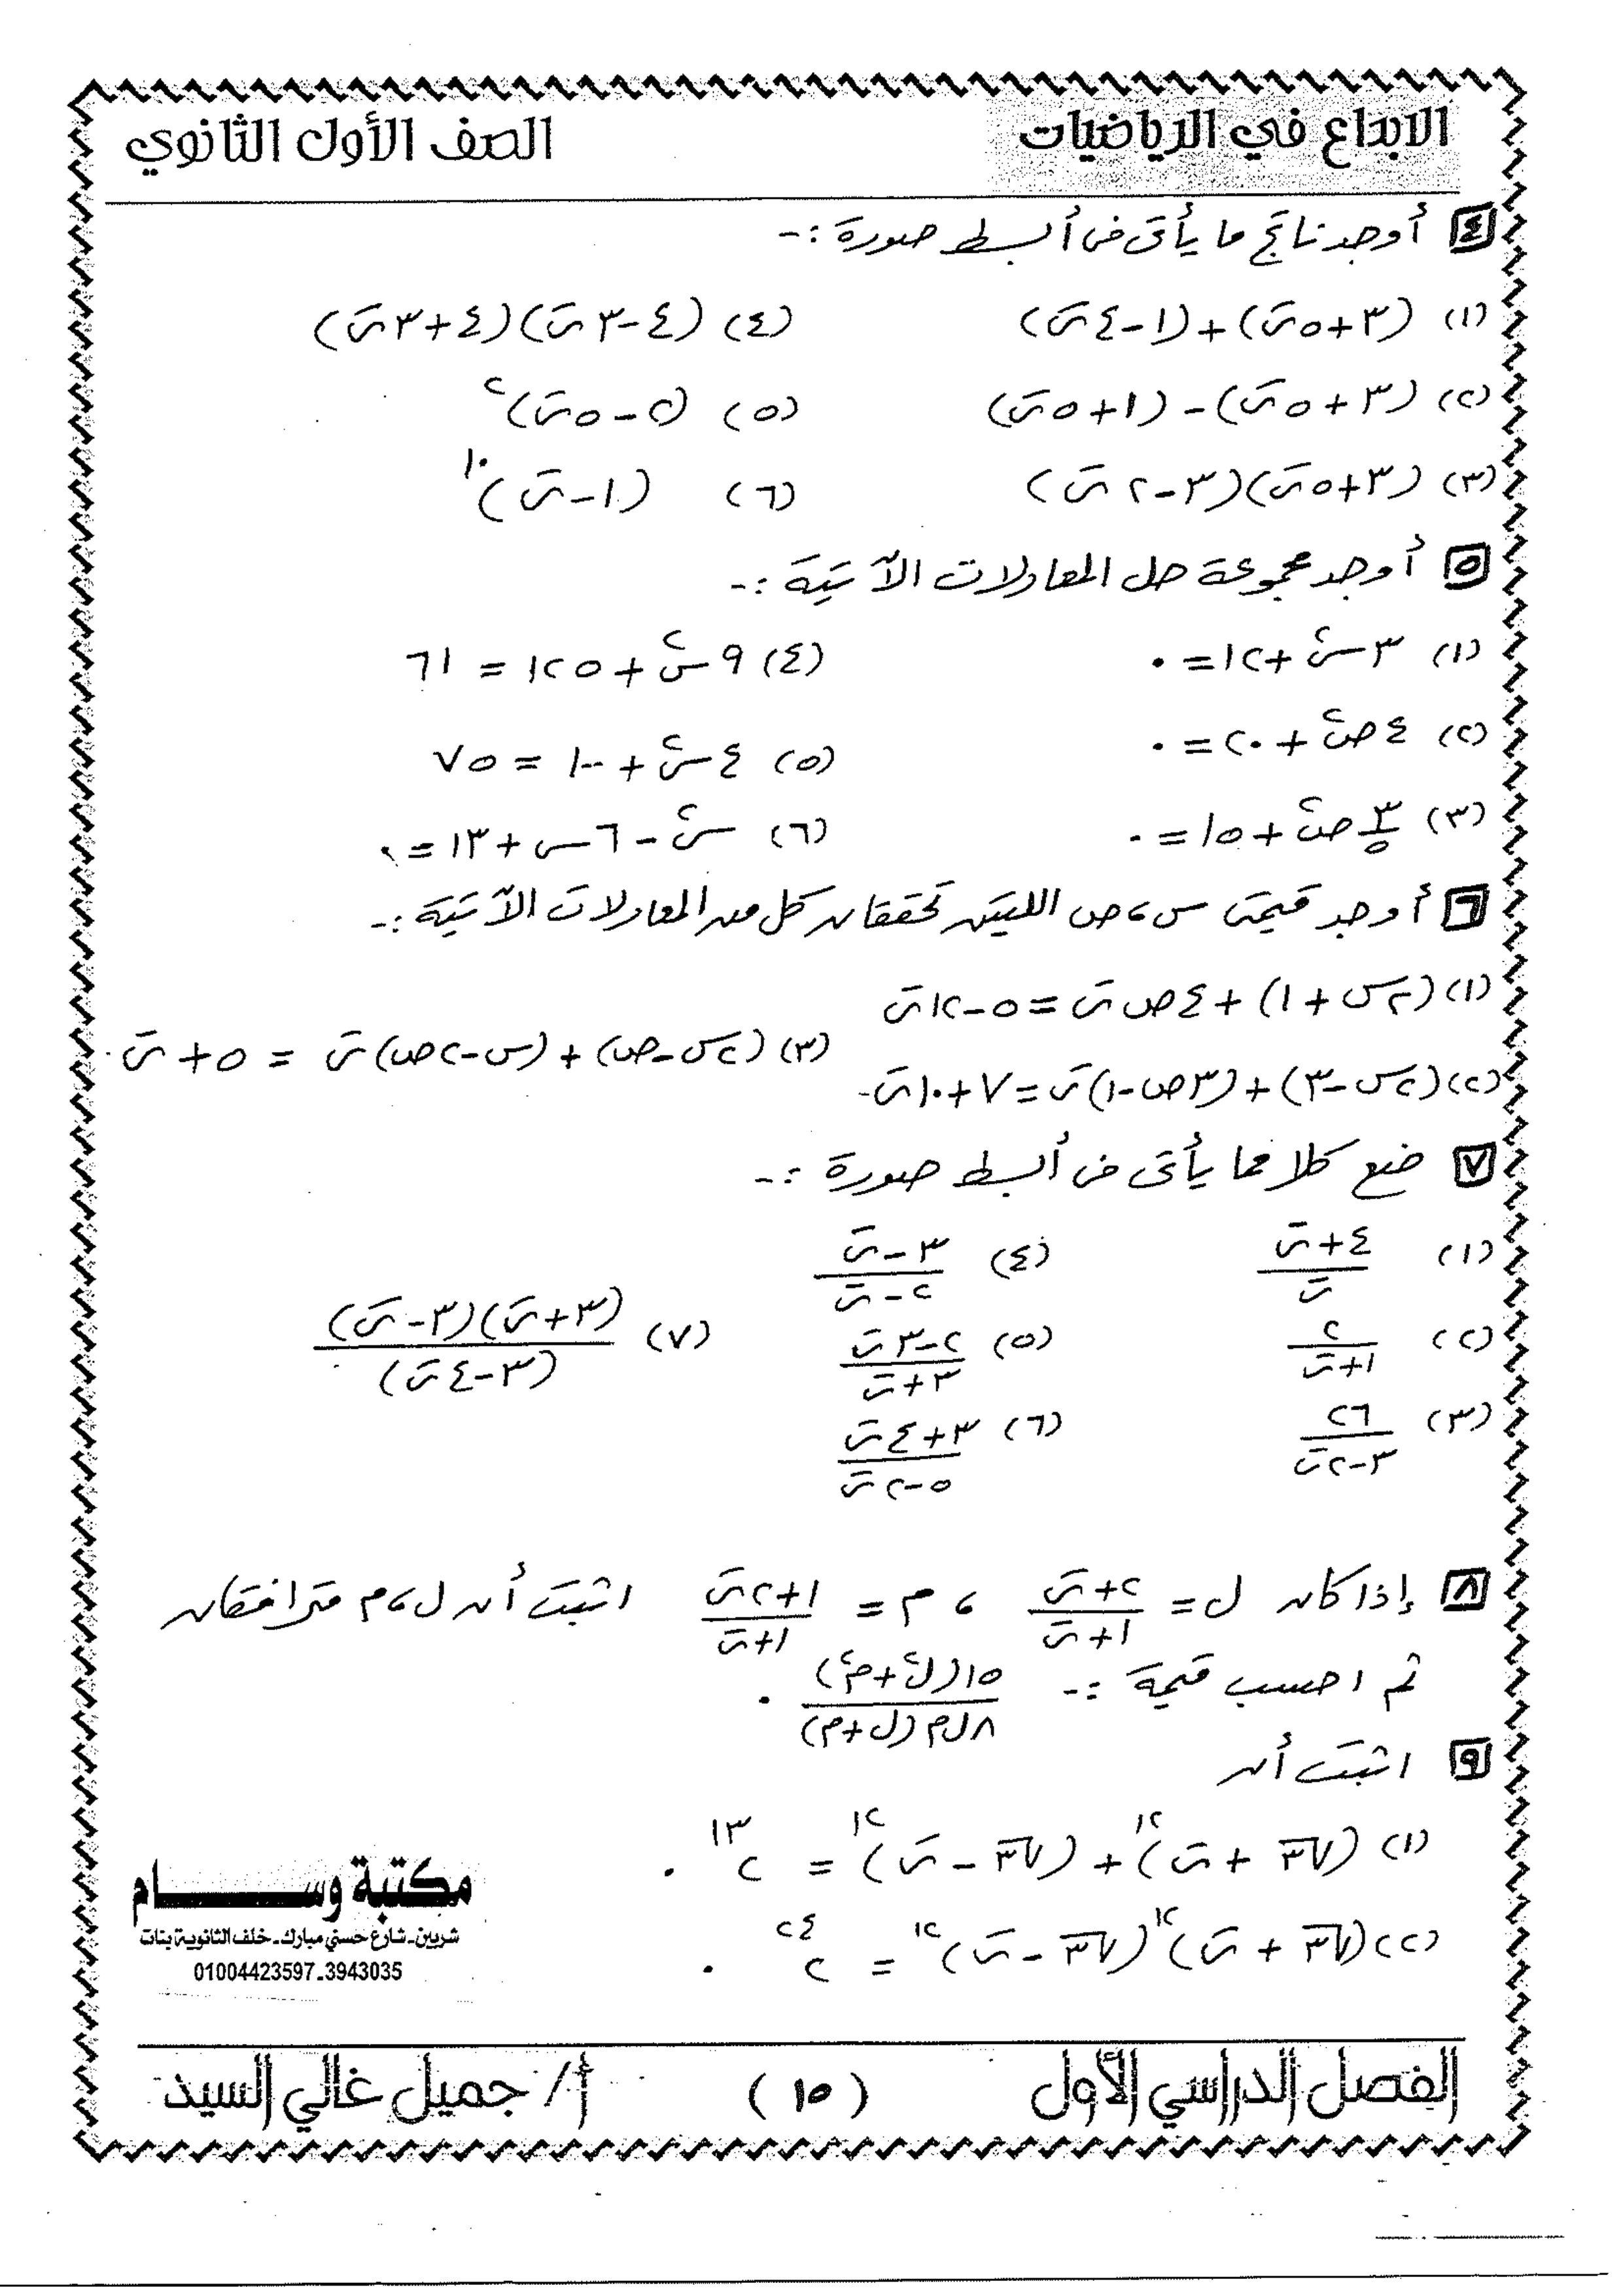 الابداع في الرياضيات
الصف الأول الثانوي
٤ أوجد ناتج ما يأتى فى أبسط صورة :-
(١) (٣+٥ت)+(١-٤ت)
(٤) (٤-٣ت)(٤+٣ت)
(٢) (٣+٥ت)-(١+٥ت)
(٥) (٢-٥ت)^٢
(٣) (٣+٥ت)(٣-٢ت)
(٦) (١-ت)^١٠
٥ أوجد مجموعة حل المعادلات الآتية :-
(١) ٣س^٢+١٢=٠
(٤) ٩س^٢+١٢٥=٦١
(٢) ٤ص^٢+٢٠=٠
(٥) ٤س^٢+١٠٠=٧٥
(٣) ٣/٥ ص^٢+١٥=٠
(٦) س^٢-٦س+١٣=٠
٦ أوجد قيمتى س، ص اللتين تحققان كل من المعادلات الآتية :-
(١) (٢س+١)+٤ص ت=٥-١٢ت
(٣) (٢س-ص)+(س-٢ص)ت=٥+ت
(٢) (٢س-٣)+(٣ص-١)ت=٧+١٠ت
٧ ضع كلا مما يأتى فى أبسط صورة :-
(١) (٤+ت)/ت
(٤) (٣-ت)/(٢-ت)
(٢) ٢/(١+ت)
(٥) (٢-٣ت)/(٣+ت)
(٧) (٣+ت)(٣-ت)/(٣-٤ت)
(٣) ٢٦/(٣-٢ت)
(٦) (٣+٤ت)/(٥-٢ت)
٨ إذا كان ل = (٢+ت)/(١+ت) ، م = (١+٢ت)/(١+ت) اثبت أن ل، م مترافقان
ثم احسب قيمة :- ١٥(ل^٢+م^٢)/٨ل م(ل+م) .
٩ اثبت أن
(١) (√٣+ت)^١٢+(√٣-ت)^١٢=٢^١٣ .
(٢) (√٣+ت)^١٢(√٣-ت)^١٢=٢^٢٤ .
مكتبة وسام
شربين-شارع حسني مبارك-خلف الثانوية بنات
01004423597-3943035
الفصل الدراسي الأول
(١٥)
أ/ جميل غالي السيد